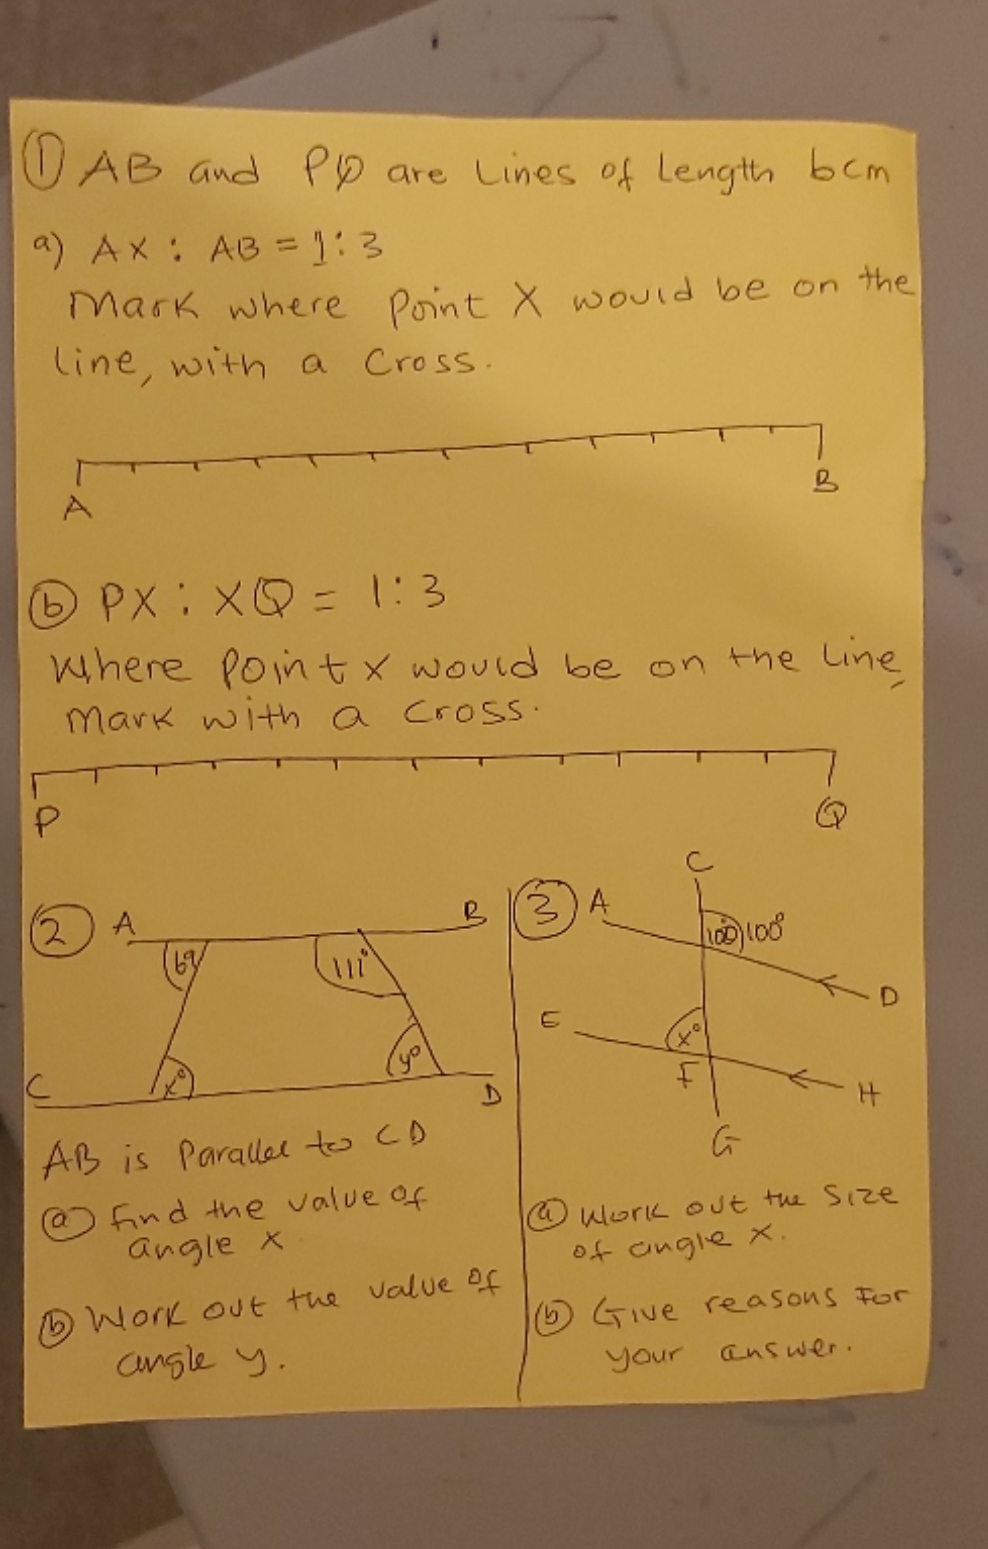 ① AB and PQ are Lines of length 6cm
a) AX : AB = 1:3
Mark where Point X would be on the
line, with a cross.
A
B
ⓑ PX : XQ = 1:3
Where Point x would be on the line,
mark with a cross.
P
Q
②
A
B
69
111°
x°
y°
C
D
AB is Parallel to CD
ⓐ find the value of
angle x
ⓑ Work out the value of
angle y.
③
C
A
100°
100°
D
E
x°
F
H
G
ⓐ Work out the size
of angle x.
ⓑ Give reasons for
your answer.